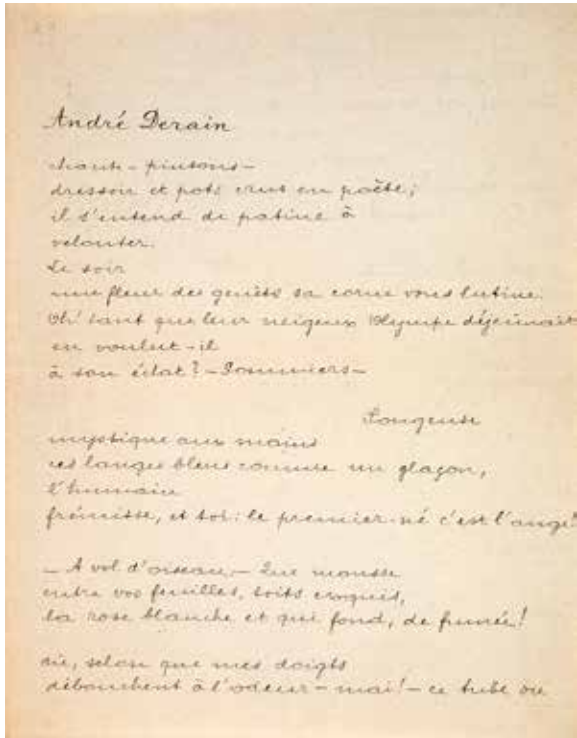 André Derain
dressoir et pots crus en poète;
il s'entend de patine à
velouter.
Le soir
une fleur des genêts sa corne vous lutine.
Oh! tant que leur neigeux Olympe déjeûnait
en voulut-il
à son éclat? – Sommiers –
Songeuse
mystique aux mains
ces langes bleus comme un glaçon,
l'humain
frémisse, et toi: le premier-né c'est l'ange!
– A vol d'oiseau. – Que mousse
entre vos feuilles, toits croquis,
la rose blanche et qui fond, de fumée!
selon que mes doigts
débouchent à l'odeur – mai! – ce tube ou